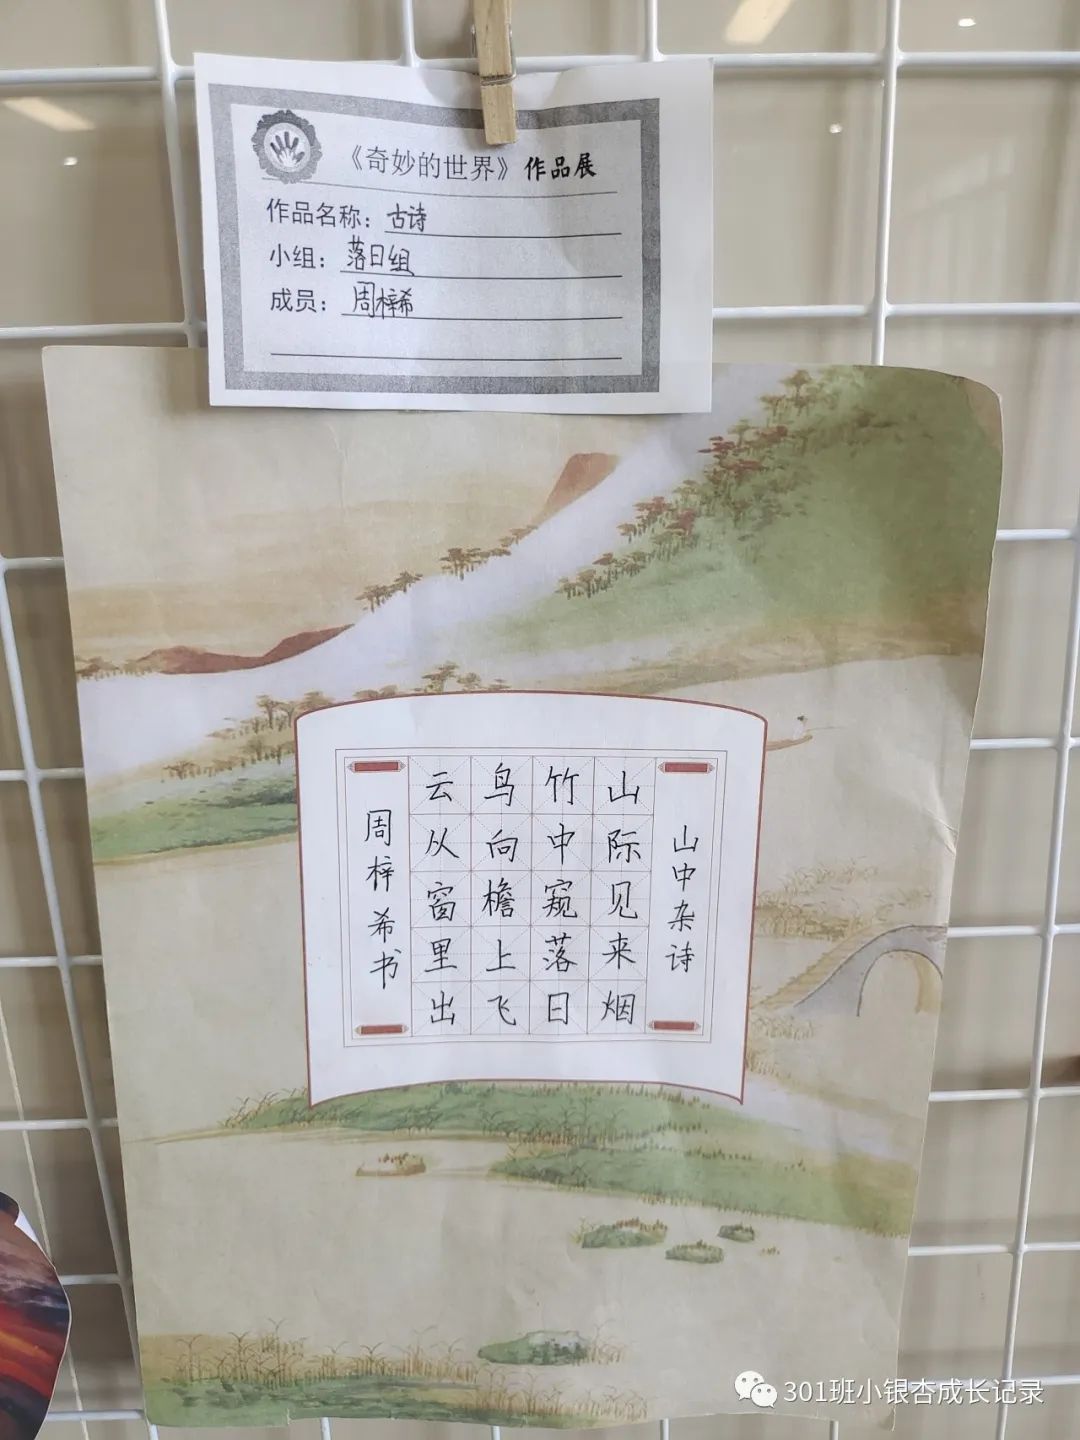 《奇妙的世界》作品展
作品名称：古诗
小组：落日组
成员：周梓希
山中杂诗
山际见来烟
竹中窥落日
鸟向檐上飞
云从窗里出
周梓希书
301班小银杏成长记录